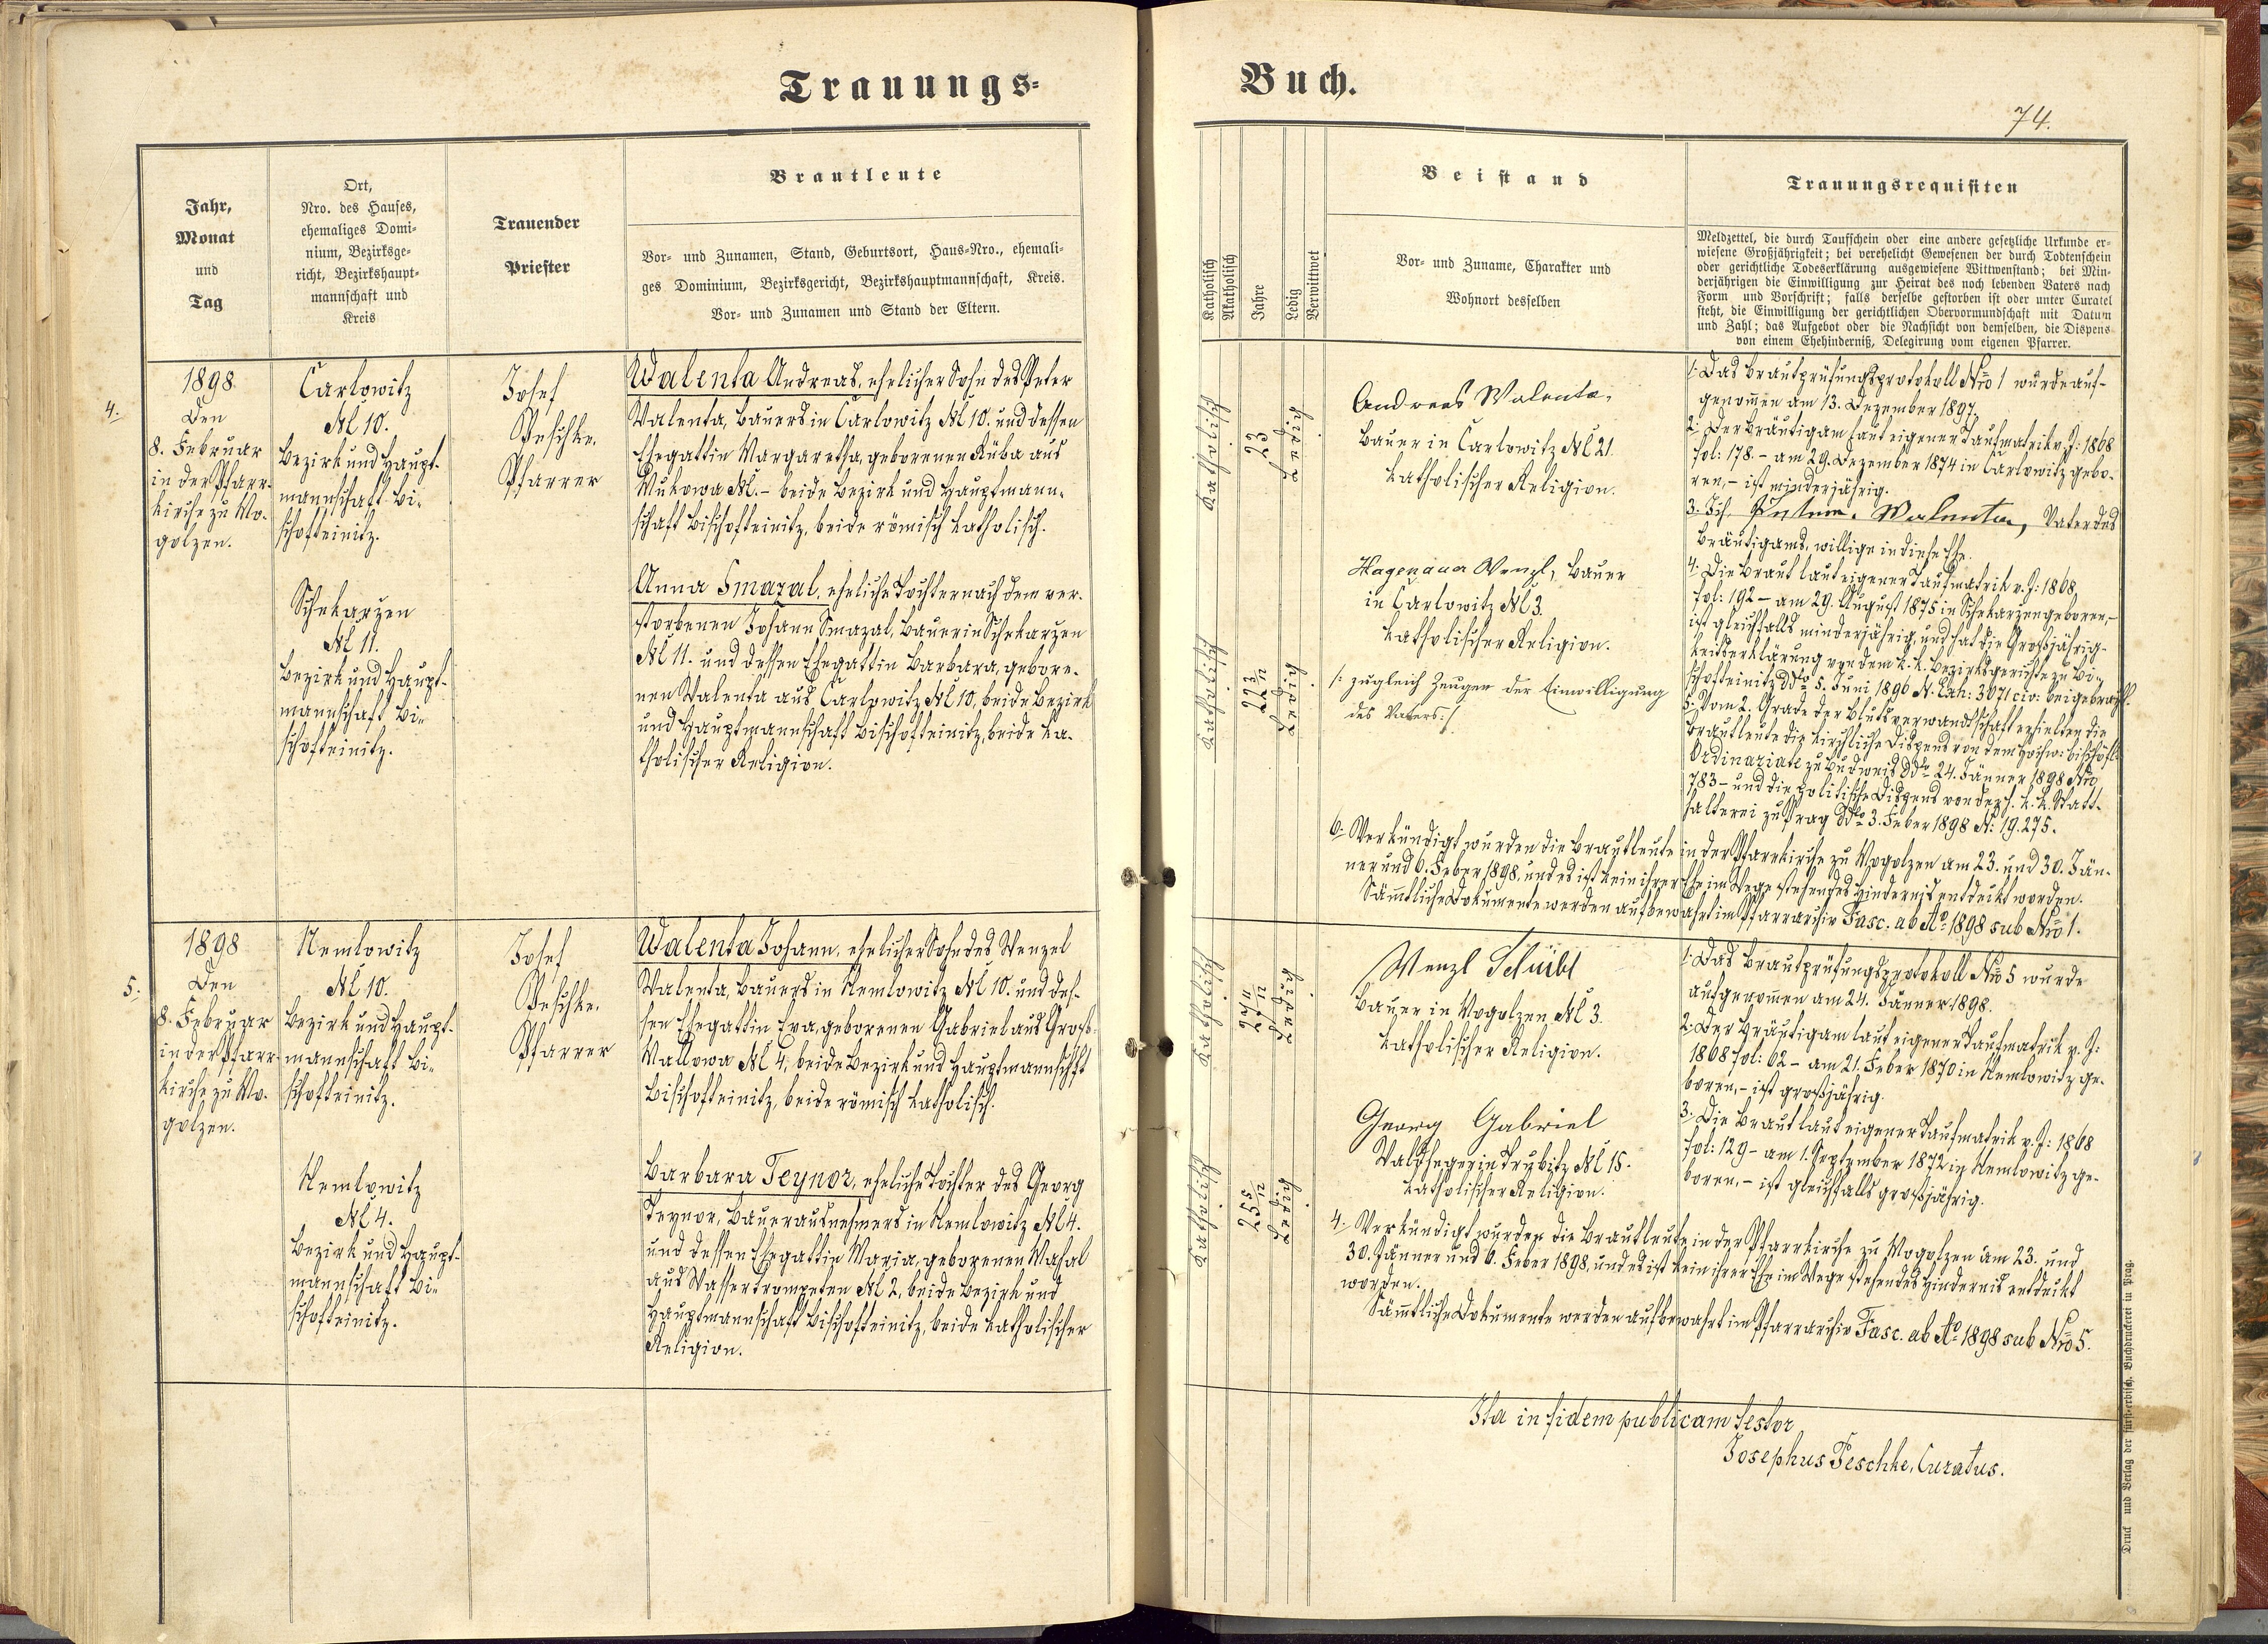 Trauungs=
Buch.
74.
Jahr,
Monat
und
Tag
Ort,
Nro. des Hauses,
ehemaliges Domi-
nium, Bezirksge-
richt, Bezirkshaupt-
mannschaft und
Kreis
Trauender
Priester
Brautleute
Vor- und Zunamen, Stand, Geburtsort, Haus-Nro., ehemali-
ges Dominium, Bezirksgericht, Bezirkshauptmannschaft, Kreis.
Vor- und Zunamen und Stand der Eltern.
Katholisch
Akatholisch
Jahre
Ledig
Verwittwet
Beistand
Vor- und Zuname, Charakter und
Wohnort desselben
Trauungsrequisiten
Meldzettel, die durch Taufschein oder eine andere gesetzliche Urkunde er-
wiesene Großjährigkeit; bei verehelicht Gewesenen der durch Todtenschein
oder gerichtliche Todeserklärung ausgewiesene Wittwenstand; bei Min-
derjährigen die Einwilligung zur Heirat des noch lebenden Vaters nach
Form und Vorschrift; falls derselbe gestorben ist oder unter Curatel
steht, die Einwilligung der gerichtlichen Obervormundschaft mit Datum
und Zahl; das Aufgebot oder die Nachsicht von demselben, die Dispens
von einem Ehehinderniß, Delegirung vom eigenen Pfarrer.
4.
1898
Den
8. Februar
in der Pfarr-
kirche zu Mo-
golzen.
Carlowitz
N 10.
Bezirk und Haupt-
mannschaft Bi-
schofteinitz.
Schekarzen
N 11.
Bezirk und Haupt-
mannschaft Bi-
schofteinitz.
Josef
Peschke.
Pfarrer
Walenta Andreas, ehelicher Sohn des Peter
Walenta, Bauers in Carlowitz N 10. und dessen
Ehegattin Margaretha, geborenen Küba aus
Wukowa N. – beide Bezirk und Hauptmann-
schaft Bischofteinitz, beide römisch katholisch.
Anna Smazal, eheliche Tochter nach dem ver-
storbenen Johann Smazal, Bauer in Schekarzen
N 11. und dessen Ehegattin Barbara, gebore-
nen Walenta aus Carlowitz N 10, beide Bezirk
und Hauptmannschaft Bischofteinitz, beide ka-
tholischer Religion.
Katholisch
23
Ledig
Katholisch
22 3/12
Ledig
Andreas Walenta,
Bauer in Carlowitz N 21.
katholischer Religion.
Hagenauer Wenzl, Bauer
in Carlowitz N 3.
katholischer Religion.
/: zugleich Zeugen der Einwilligung
des Vaters :/
1. Das Brautprüfungsprotokoll Nro 1 wurde auf-
genommen am 13. Dezember 1897.
2. Der Bräutigam laut eigener Taufmatrik v. J: 1868
fol: 178. – am 29. Dezember 1874 in Carlowitz gebo-
ren, – ist minderjährig.
3. Ich Walenta, Vater des
Bräutigams, willige in diese Ehe.
4. Die Braut laut eigener Taufmatrik v. J: 1868
fol: 192 – am 29. August 1875 in Schekarzen geboren, –
ist gleichfalls minderjährig, und hat die Großjährig-
keitserklärung von dem k. k. Bezirksgerichte zu Bi-
schofteinitz ddo 5. Juni 1896 N. Exh: 3071 civ: beigebracht.
5. Vom 2. Grade der Blutsverwandtschaft erhielten die
Brautleute die kirchliche Dispens von dem hochw: bischöfl.
Ordinariate zu Budweis ddo 24. Jänner 1898 Nro
783 – und die politische Dispens von der h. k. k. Statt-
halterei zu Prag ddo 3. Feber 1898 N: 19.275.
6. Verkündigt wurden die Brautleute in der Pfarrkirche zu Mogolzen am 23. und 30. Jän-
ner und 6. Feber 1898, und es ist kein ihrer Ehe im Wege stehendes Hindernis entdeckt worden.
Sämmtliche Dokumente werden aufbewahrt im Pfarrarchiv Fasc. ab Ao 1898 sub Nro 1.
5.
1898
Den
8. Februar
in der Pfarr-
kirche zu Mo-
golzen.
Nemlowitz
N 10.
Bezirk und Haupt-
mannschaft Bi-
schofteinitz.
Nemlowitz
N 4.
Bezirk und Haupt-
mannschaft Bi-
schofteinitz.
Josef
Peschke.
Pfarrer
Walenta Johann, ehelicher Sohn des Wenzel
Walenta, Bauers in Nemlowitz N 10. und des-
sen Ehegattin Eva, geborenen Gabriel aus Groß-
Mallowa N 4, beide Bezirk und Hauptmannschft
Bischofteinitz, beide römisch katholisch.
Barbara Teynor, eheliche Tochter des Georg
Teynor, Bauerausnehmers in Nemlowitz N 4.
und dessen Ehegattin Maria, geborenen Masal
aus Wassertrompeten N 2, beide Bezirk und
Hauptmannschaft Bischofteinitz, beide katholischer
Religion.
Katholisch
27 11/12
Ledig
Katholisch
25 5/12
Ledig
Wenzl Schübl
Bauer in Mogolzen N 3.
katholischer Religion.
Georg Gabriel
Waldheger in Trubitz N 15.
katholischer Religion.
1. Das Brautprüfungsprotokoll Nro 5 wurde
aufgenommen am 24. Jänner 1898.
2. Der Bräutigam laut eigener Taufmatrik v. J:
1868 fol: 62 – am 21. Feber 1870 in Nemlowitz ge-
boren, – ist großjährig.
3. Die Braut laut eigener Taufmatrik v. J: 1868
fol: 129 – am 1. September 1872 in Nemlowitz ge-
boren, – ist gleichfalls großjährig.
4. Verkündigt wurden die Brautleute in der Pfarrkirche zu Mogolzen am 23. und
30. Jänner und 6. Feber 1898, und es ist kein ihrer Ehe im Wege stehendes Hindernis entdeckt
worden.
Sämmtliche Dokumente werden aufbewahrt im Pfarrarchiv Fasc. ab Ao 1898 sub Nro 5.
Ita in fidem publicam testor
Josephus Peschke, Curatus.
Druck und Verlag der fürst-erzbisch. Buchdruckerei in Prag.